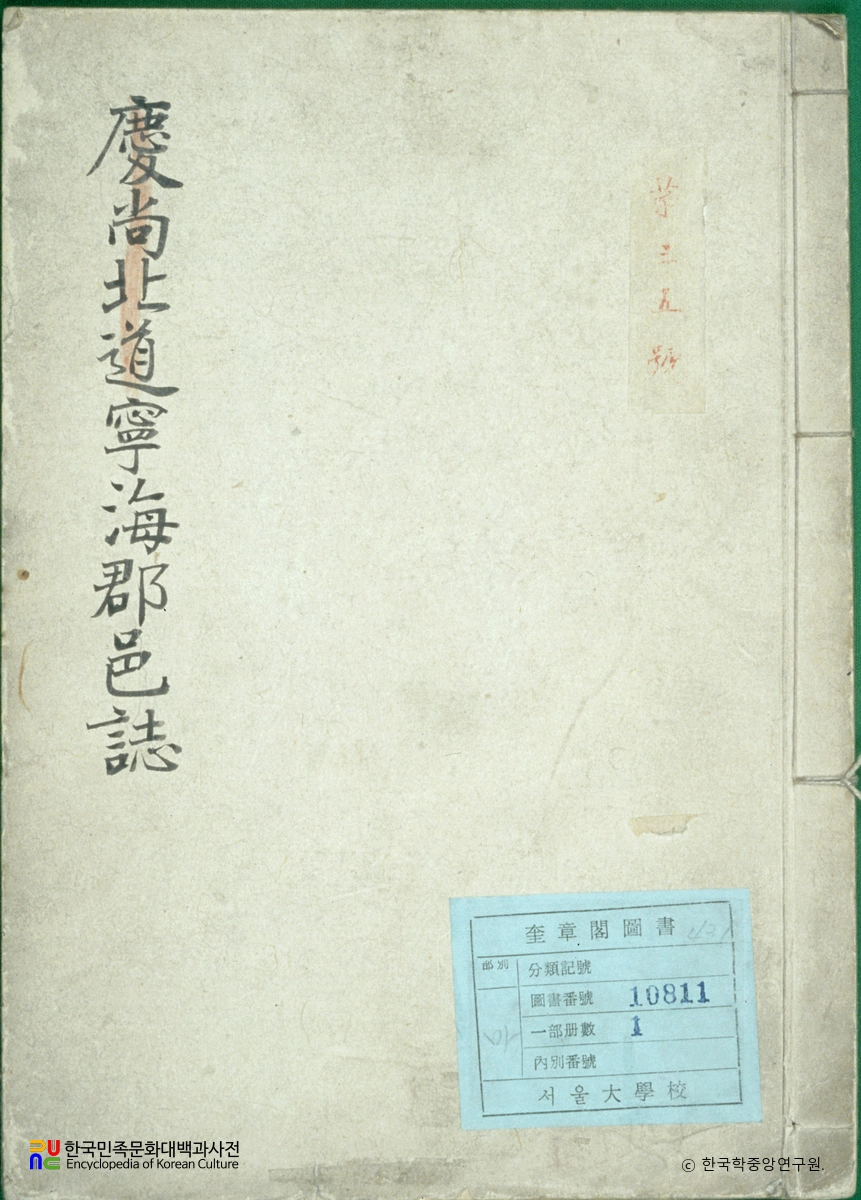 慶尚北道寧海郡邑誌
第三五號
奎章閣圖書
部別
分類記號
圖書番號 10811
一部册數 1
內別番號
서울大學校
한국민족문화대백과사전
Encyclopedia of Korean Culture
ⓒ 한국학중앙연구원.